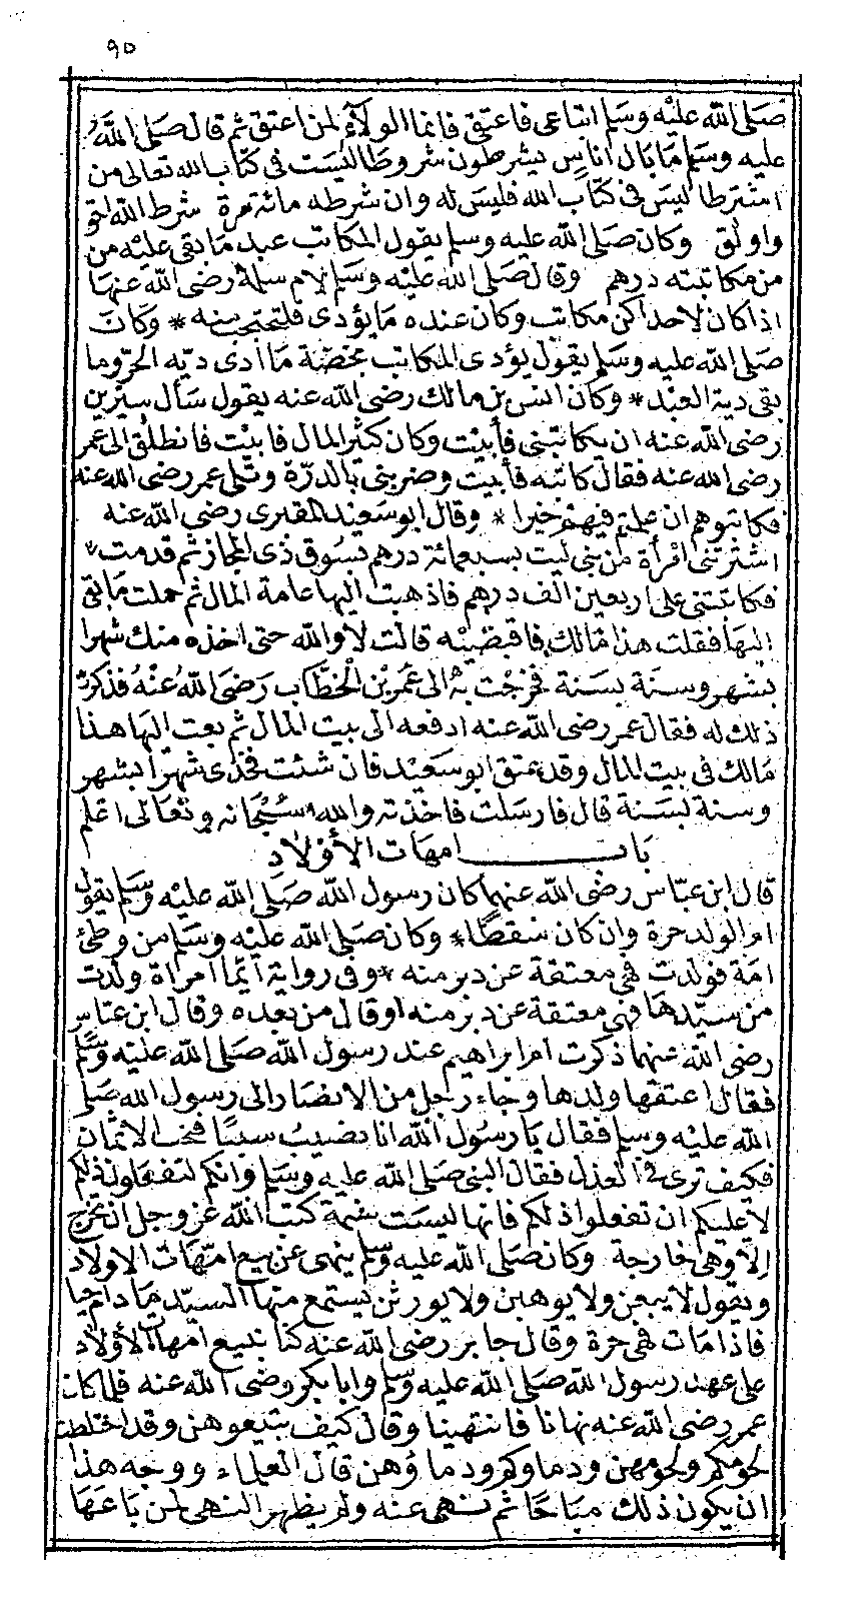 ٩٥
صلى الله عليه وسلم ابتاعى فاعتقى فانما الولاء لمن اعتق ثم قال صلى الله
عليه وسلم ما بال اناس يشرطون شروطا ليست فى كتاب الله تعالى من
اشترطا ليس فى كتاب الله فليس له وان شرطه مائة مرة شرط الله احق
واوثق وكان صلى الله عليه وسلم يقول المكاتب عبد ما بقى عليه من
من مكاتبته درهم وقال صلى الله عليه وسلم لام سلمة رضى الله عنها
اذا كان لاحداكن مكاتب وكان عنده ما يؤدى فلتحتجب منه * وكان
صلى الله عليه وسلم يقول يؤدى المكاتب بحصة ما ادى دية الحر وما
بقى دية العبد * وكان انس بن مالك رضى الله عنه يقول سأل سيرين
رضى الله عنه ان يكاتبنى فأبيت وكان كثير المال فابيت فانطلق الى عمر
رضى الله عنه فقال كاتبه فأبيت وضربنى بالدرة وتلى عمر رضى الله عنه
فكاتبوهم ان علمتم فيهم خيرا * وقال ابو سعيد المقبرى رضى الله عنه
اشترتنى امرأة من بنى ليث بسبعمائة درهم بسوق ذى المجاز ثم قدمت
فكاتبتنى على اربعين الف درهم فاذهبت اليها عامة المال ثم حملت ما بقى
اليها فقلت هذا مالك فاقبضيه قالت لا والله حتى اخذه منك شهرا
بشهر وسنة بسنة فخرجت به الى عمر بن الخطاب رضى الله عنه فذكرت
ذلك له فقال عمر رضى الله عنه ادفعه الى بيت المال ثم بعث اليها هذا
مالك فى بيت المال وقد عتق ابو سعيد فان شئت فخذى شهرا بشهر
وسنة بسنة قال فارسلت فاخذته والله سبحانه وتعالى اعلم
باب امهات الأولاد
قال ابن عباس رضى الله عنهما كان رسول الله صلى الله عليه وسلم يقول
ام الولد حرة وان كان سقطا * وكان صلى الله عليه وسلم من وطئ
امة فولدت فهى معتقة عن دبر منه * وفى رواية ايما امراة ولدت
من سيدها فهى معتقة عن دبر منه او قال من بعده وقال ابن عباس
رضى الله عنهما ذكرت ام ابراهيم عند رسول الله صلى الله عليه وسلم
فقال اعتقها ولدها وجاء رجل من الانصار الى رسول الله صلى
الله عليه وسلم فقال يا رسول الله انا نصيب سبيا فنحب الاثمان
فكيف ترى فى العزل فقال النبى صلى الله عليه وسلم وانكم لتفعلون ذلكم
لا عليكم ان تفعلوا ذلكم فانها ليست نسمة كتب الله عز وجل ان تخرج
الا وهى خارجة وكان صلى الله عليه وسلم ينهى عن بيع امهات الاولاد
ويقول لا يبعن ولا يوهبن ولا يورثن يستمتع منها السيد ما دام حيا
فاذا مات فهى حرة وقال جابر رضى الله عنه كنا نبيع امهات الأولاد
على عهد رسول الله صلى الله عليه وسلم وابا بكر رضى الله عنه فلما كان
عمر رضى الله عنه نهانا فانتهينا وقال كيف بتيعوهن وقد اختلطت
لحومكم ولحومهن ودماوكم ودماؤهن قال العلماء ووجه هذا
ان يكون ذلك مباحا ثم نهى عنه ولم يظهر النهى لمن باعها